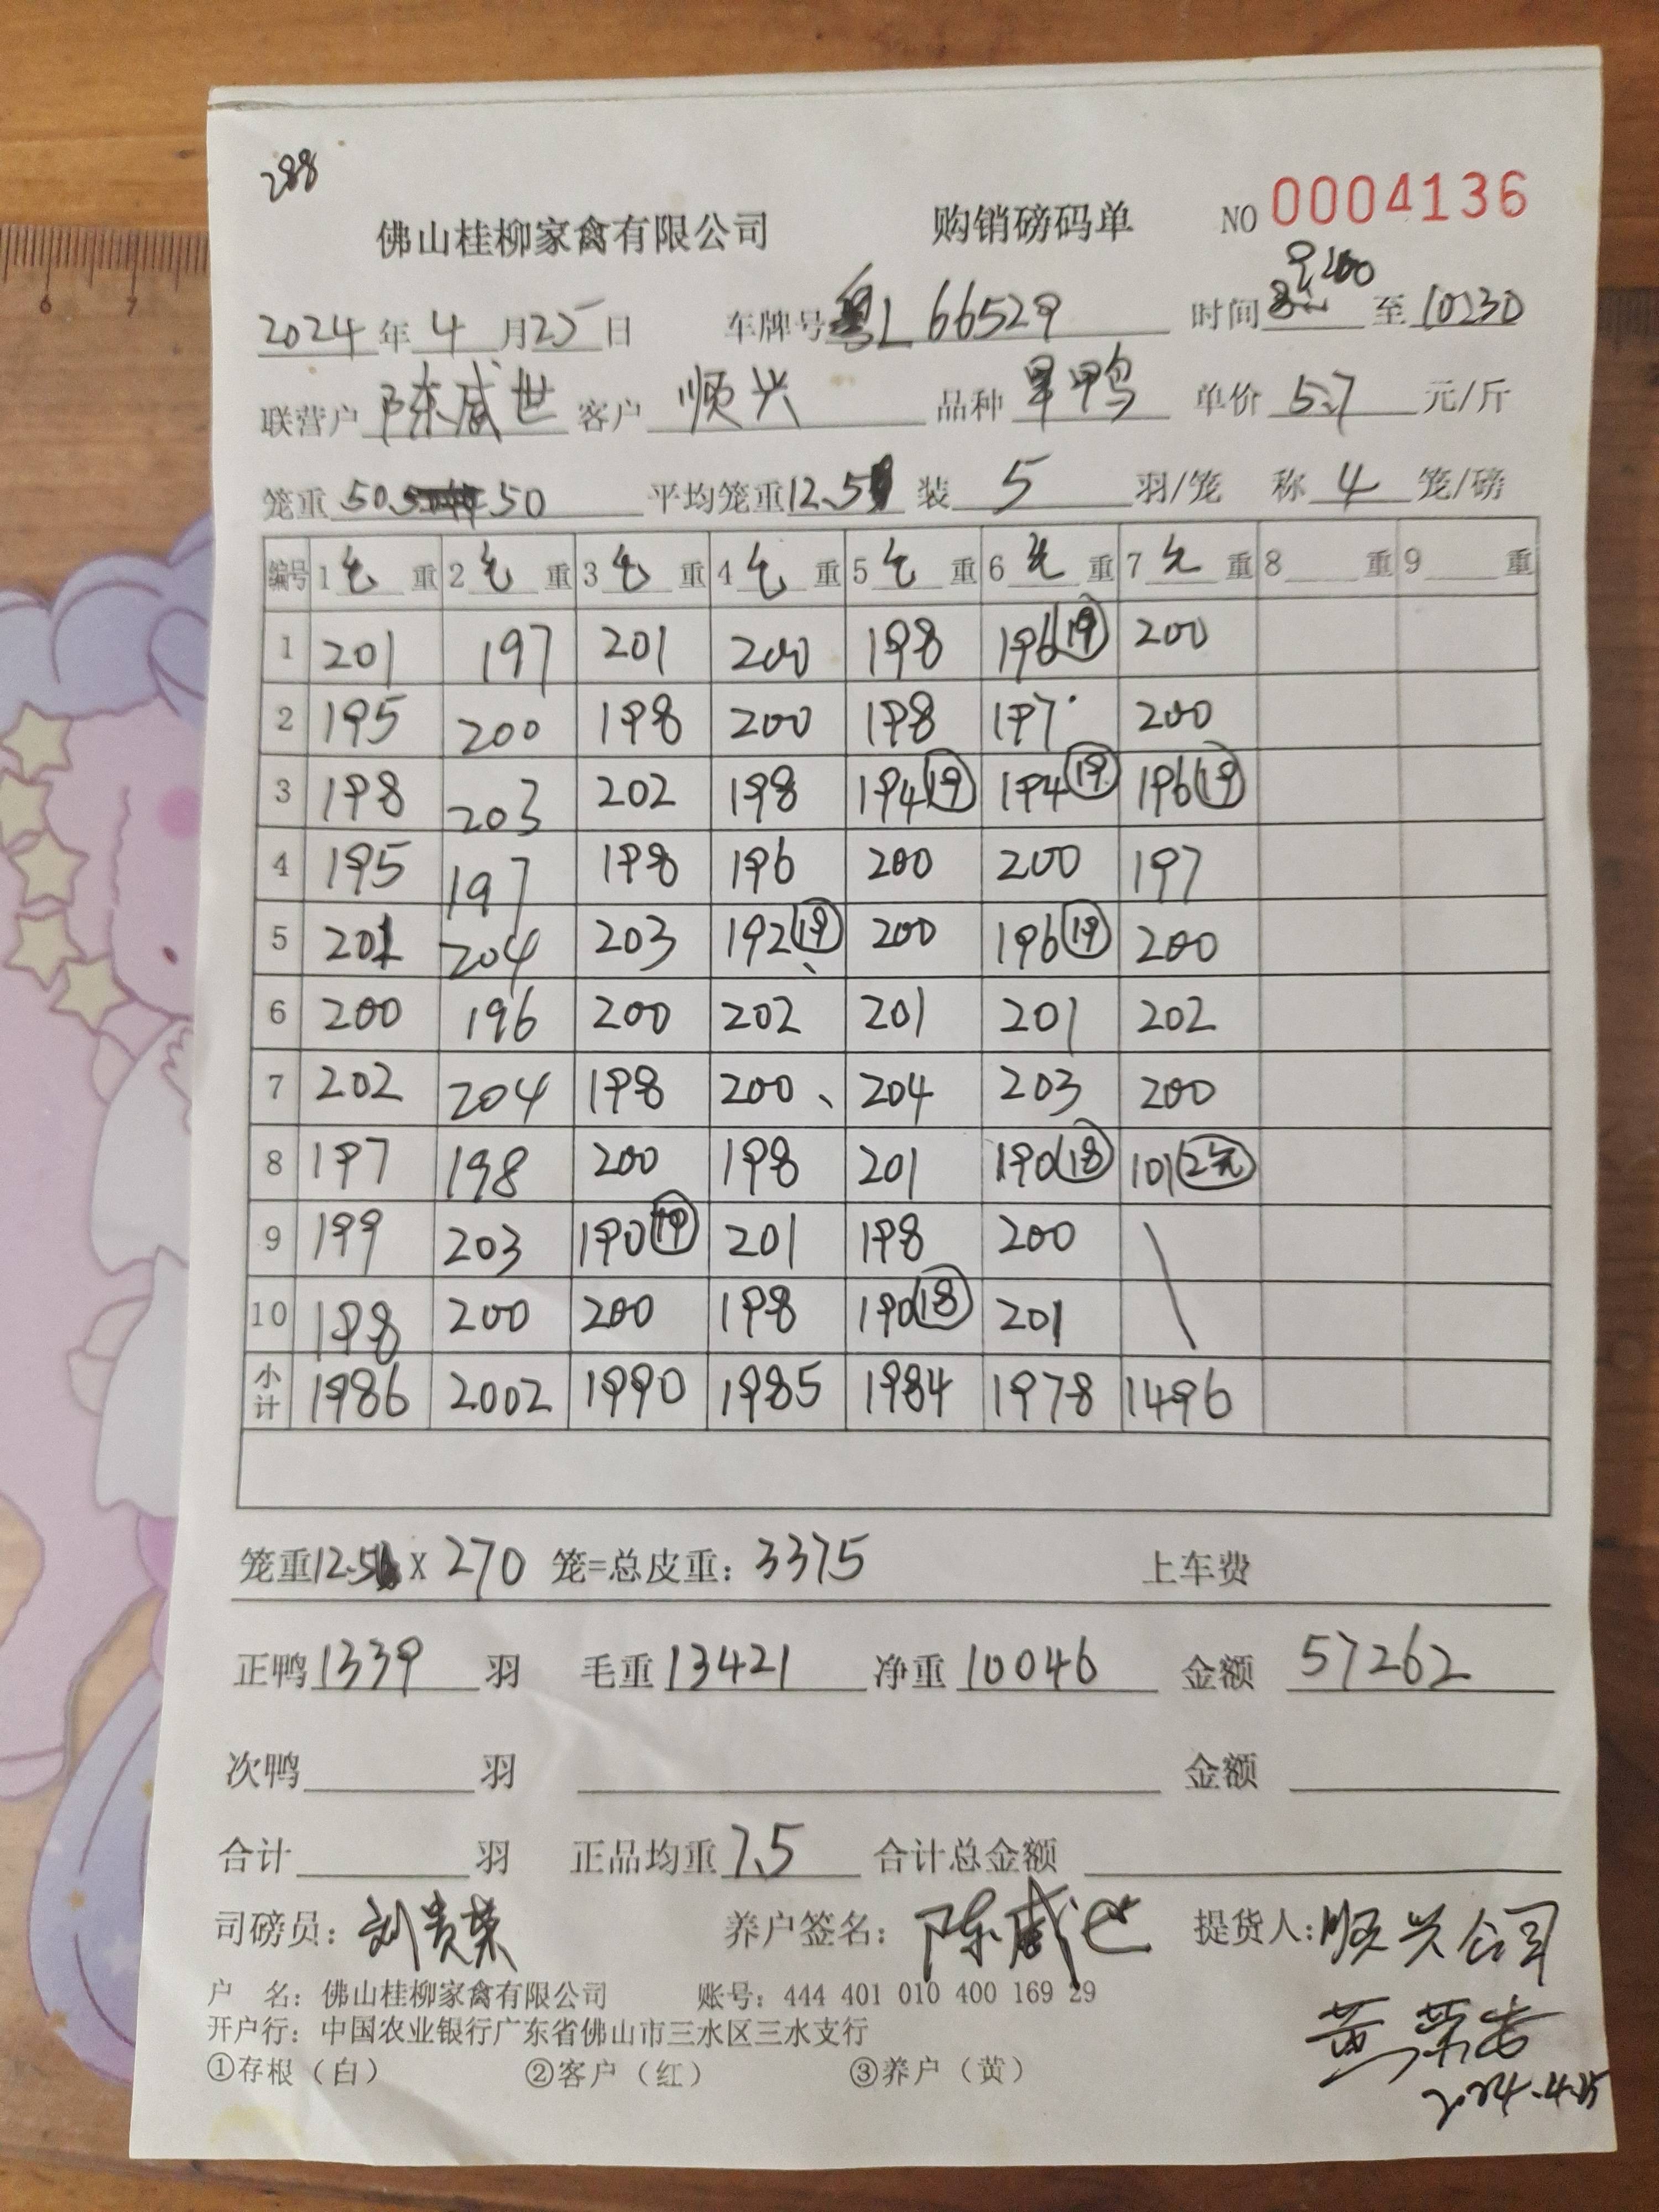 288
佛山桂柳家禽有限公司 购销磅码单 NO 0004136
2024年4月25日 车牌号粤L 66529 时间 至10:30
联营户陈威世 客户顺兴 品种旱鸭 单价5.7元/斤
笼重50.5 50 平均笼重12.5 装5羽/笼 称4笼/磅
编号 1毛重 2毛重 3毛重 4毛重 5毛重 6毛重 7毛重 8重 9重
1 201 197 201 200 198 196(19) 200
2 195 200 198 200 198 197 200
3 198 203 202 198 194(19) 194(19) 196(19)
4 195 197 198 196 200 200 197
5 201 204 203 192(19) 200 196(19) 200
6 200 196 200 202 201 201 202
7 202 204 198 200、 204 203 200
8 197 198 200 198 201 190(18) 101(2笼)
9 199 203 190(19) 201 198 200 \
10 198 200 200 198 190(18) 201
小计 1986 2002 1990 1985 1984 1978 1496
笼重12.5 x 270 笼=总皮重：3375 上车费
正鸭1339羽 毛重13421 净重10046 金额57262
次鸭 羽 金额
合计 羽 正品均重7.5 合计总金额
司磅员：刘贵荣 养户签名：陈威世 提货人：顺兴公司
户 名：佛山桂柳家禽有限公司 账号：444 401 010 400 169 29
开户行：中国农业银行广东省佛山市三水区三水支行
①存根（白） ②客户（红） ③养户（黄）
2024.4.25